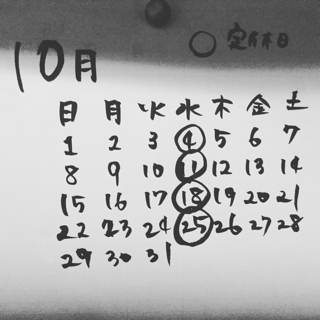 定休日
10月
日 月 火 水 木 金 土
1 2 3 4 5 6 7
8 9 10 11 12 13 14
15 16 17 18 19 20 21
22 23 24 25 26 27 28
29 30 31